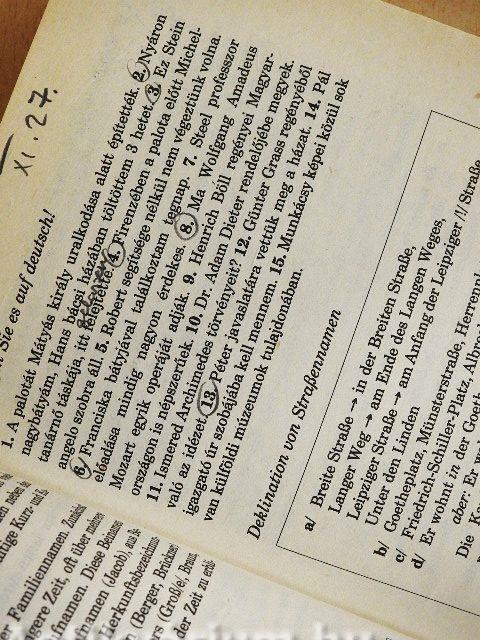 XI. 27.
Sie es auf deutsch!
1. A palotát Mátyás király uralkodása alatt építették. 2. Nyáron
nagybátyám, Hans bácsi házában töltöttem 3 hetet. 3. Ez Stein
tanárnő táskája, itt felejtette. 4. Firenzében a palota előtt Michel-
angelo szobra áll 5. Robert segítsége nélkül nem végeztünk volna.
6. Franciska bátyjával találkoztam tegnap. 7. Steel professzor
előadása mindig nagyon érdekes. 8. Ma Wolfgang Amadeus
Mozart egyik operáját adják. 9. Henrich Böll regényei Magyar-
országon is népszerűek. 10. Dr. Adam Dieter rendelőjébe megyek.
11. Ismered Archimedes törvényeit? 12. Günter Grass regényéből
való az idézet. 13. Péter javaslatára vettük meg a házat. 14. Pál
igazgató úr szobájába kell mennem. 15. Munkácsy képei közül sok
van külföldi múzeumok tulajdonában.
Deklination von Straßennamen
a/ Breite Straße → in der Breiten Straße,
Langer Weg → am Ende des Langen Weges,
Leipziger Straße → am Anfang der Leipziger /!/ Straße
Unter den Linden
b/ Goetheplatz, Münsterstraße, Herrenn
c/ Friedrich-Schiller-Platz, Albre
d/ Er wohnt in der Goet
aber: Er w
Die Ka
er Familiennamen. Zunächst
gere Zeit, oft über mehrere
fnamen. Diese Beinamen
namen (Jacob), aus
Herkunftsbezeichnung
n (Berger, Brückner
rs (Gro(ß)e/, Braun
der Zeit zu erbli